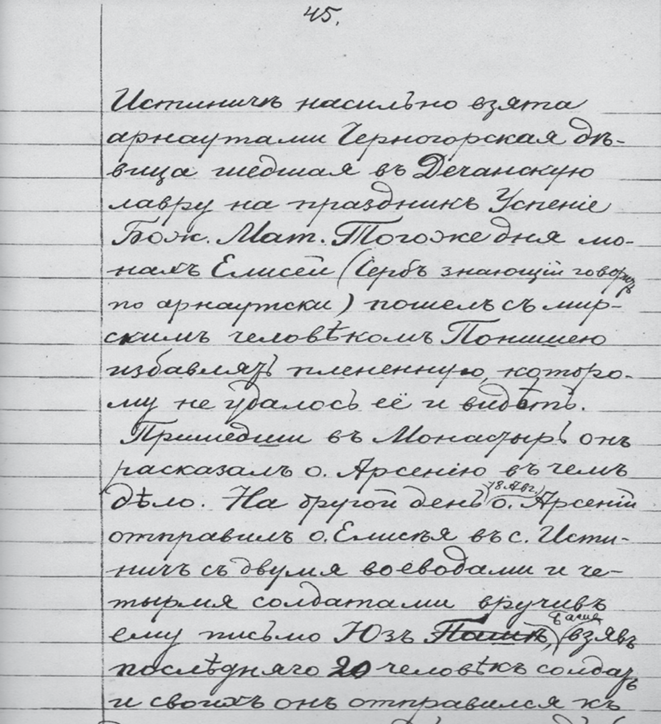 45.
Истиничъ насильно взята
арнаутами Черногорская дѣ-
вица шедшая въ Дечанскую
лавру на праздникъ Успеніе
Бож. Мат. Тогоже дня мо-
нахъ Елисей (Сербъ знающій говорить
по арнаутски) пошелъ съ мир-
скимъ человѣкомъ Понишею
избавлять плененную, которо-
му не удалось её и видѣть.
Пришедши въ Монастырь онъ
расказалъ о. Арсенію въ чемъ
дѣло. На другой день (18 Авг.) о. Арсеній
отправилъ о. Елисѣя въ с. Исти-
ничъ съ двумя воеводами и че-
тырмя солдатами вручивъ
ему письмо Юзъ Пашѣ, взявъ
послѣдняго 20 человѣкъ солдатъ
и своихъ онъ отправился къ